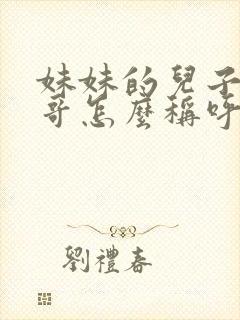 妹妹的兒子
哥怎麼稱呼
劉禮春